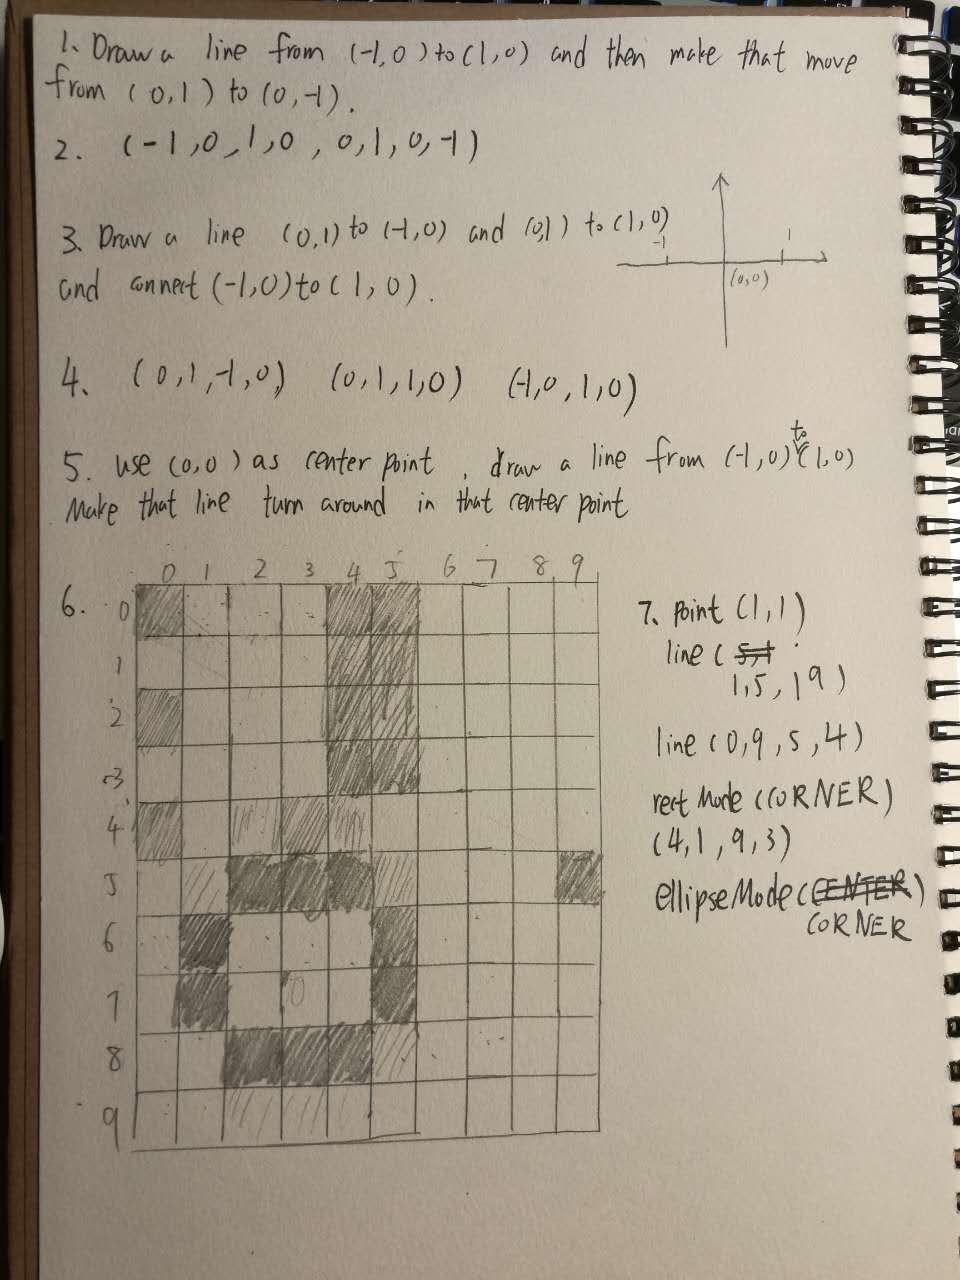 1. Draw a line from (-1,0) to (1,0) and then make that move
from (0,1) to (0,-1).
2. (-1,0,1,0,0,1,0,-1)
3. Draw a line (0,1) to (-1,0) and (0,1) to (1,0)
and connect (-1,0) to (1,0).
-1 1
(0,0)
4. (0,1,-1,0) (0,1,1,0) (-1,0,1,0)
5. use (0,0) as center point, draw a line from (-1,0) to (1,0)
Make that line turn around in that center point
6.
0 1 2 3 4 5 6 7 8 9
0
1
2
3
4
5
6
7
8
9
7. point (1,1)
line (
1,5,19)
line (0,9,5,4)
rect Mode (CORNER)
(4,1,9,3)
ellipseMode (CENTER)
CORNER